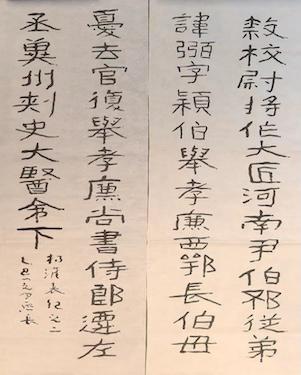 隸校尉將作大匠河南尹伯邳從弟
諱弼字穎伯舉孝廉西鄂長伯母
憂去官復舉孝廉尚書侍郎遷左
丞冀州刺史大醫令下
楊淮表紀之二
乙丑